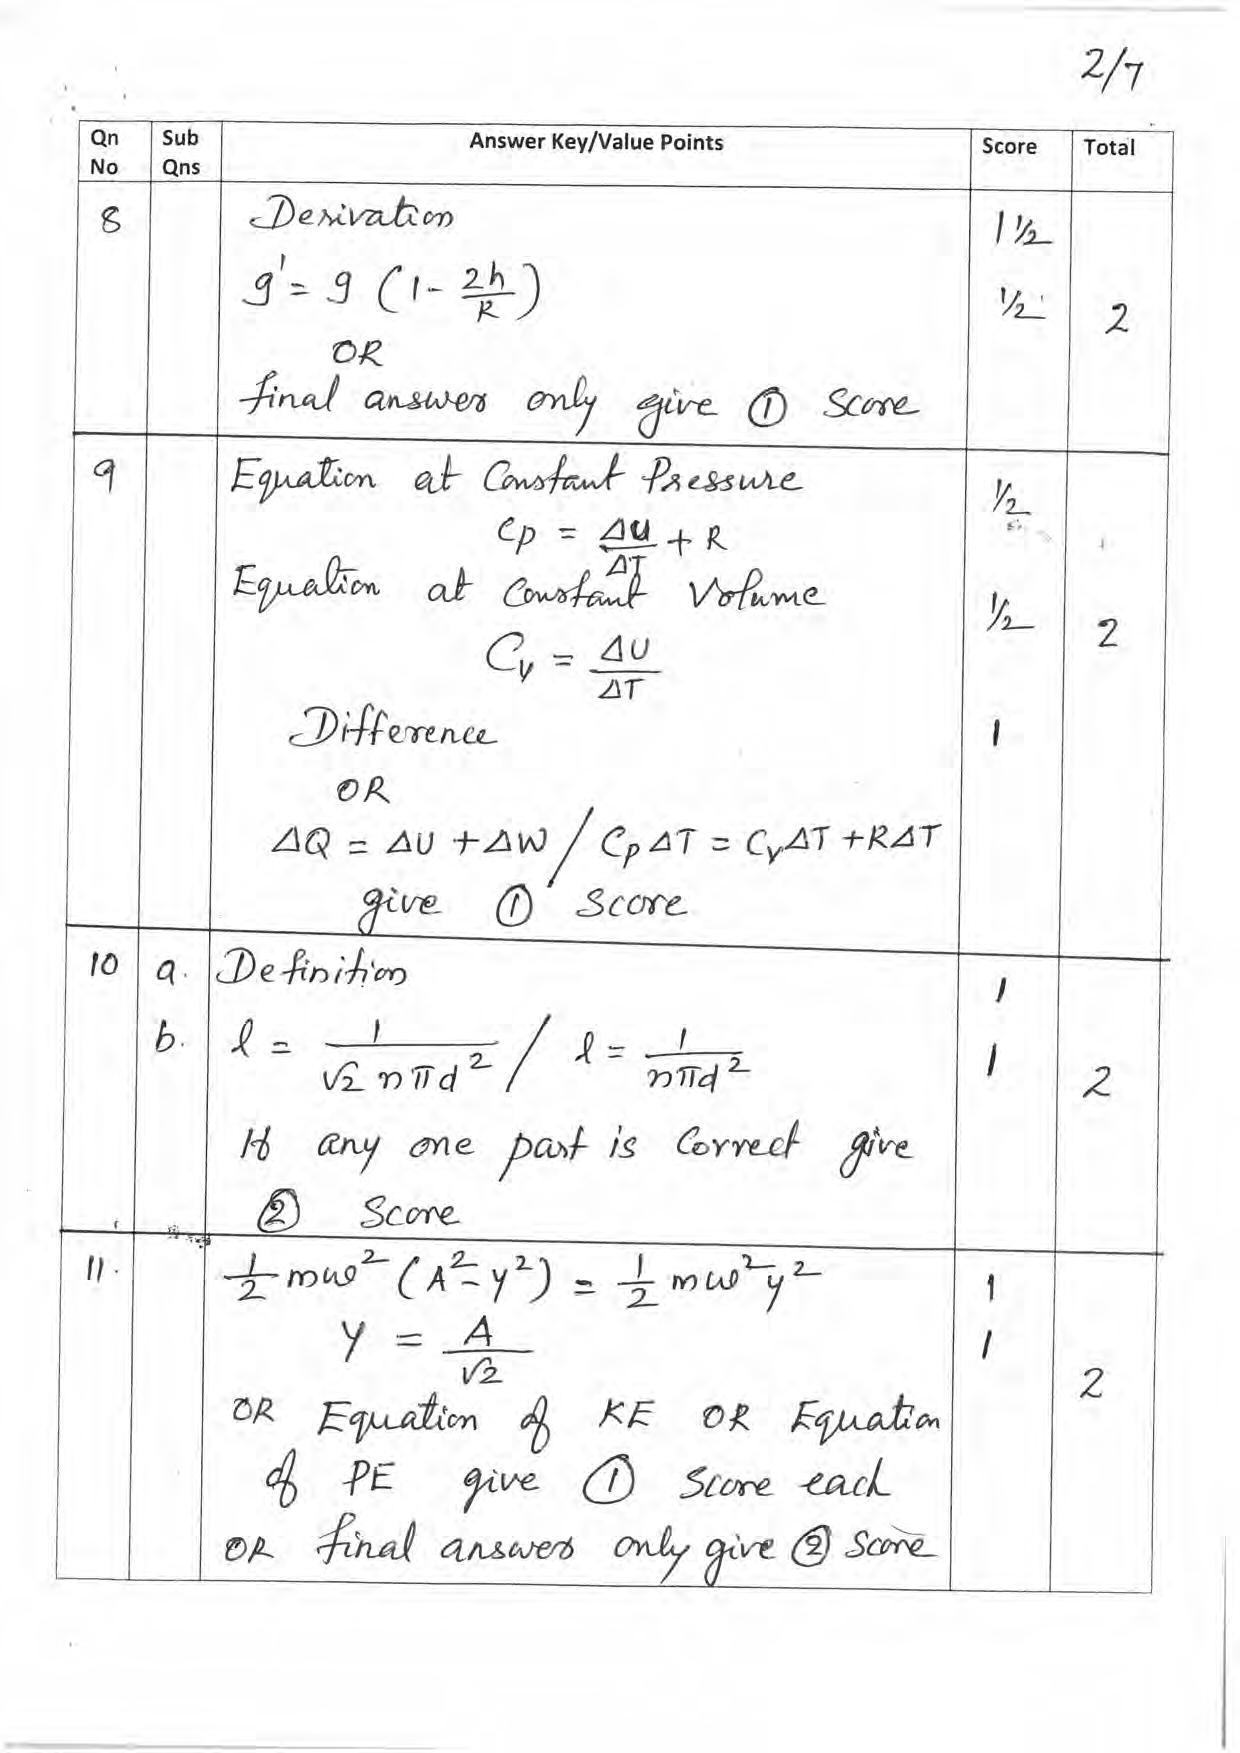 2/7
Qn No Sub Qns Answer Key/Value Points Score Total
8 Derivation 1 ½
g' = g (1 - 2h/R) ½ 2
OR
final answer only give ① Score
9 Equation at Constant Pressure ½
Cp = ΔU/ΔT + R
Equation at Constant Volume ½ 2
Cv = ΔU/ΔT
Difference 1
OR
ΔQ = ΔU + ΔW / CpΔT = CvΔT + RΔT
give ① Score
10 a. Definition 1
b. l = 1/√2 nπd² / l = 1/nπd² 1 2
If any one part is Correct give
② Score
11. ½ mω² (A² - y²) = ½ mω²y² 1
y = A/√2 1 2
OR Equation of KE OR Equation
of PE give ① Score each
OR final answer only give ② Score